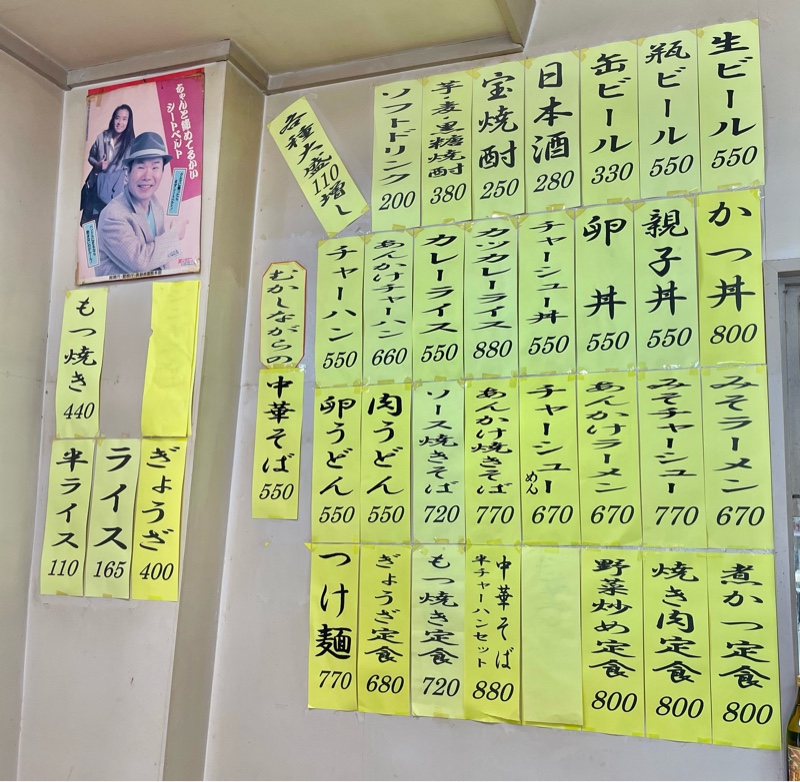 生ビール 550
瓶ビール 550
缶ビール 330
日本酒 280
宝焼酎 250
芋・麦・黒糖焼酎 380
ソフトドリンク 200
各種大盛110増し
かつ丼 800
親子丼 550
卵丼 550
チャーシュー丼 550
カツカレーライス 880
カレーライス 550
あんかけチャーハン 660
チャーハン 550
むかしながらの
中華そば 550
みそラーメン 670
みそチャーシュー 770
あんかけラーメン 670
チャーシューめん 670
あんかけ焼きそば 770
ソース焼きそば 720
肉うどん 550
卵うどん 550
煮かつ定食 800
焼き肉定食 800
野菜炒め定食 800
中華そば
半チャーハンセット 880
もつ焼き定食 720
ぎょうざ定食 680
つけ麺 770
ちゃんと締めてるかい
シートベルト
もつ焼き 440
ぎょうざ 400
ライス 165
半ライス 110